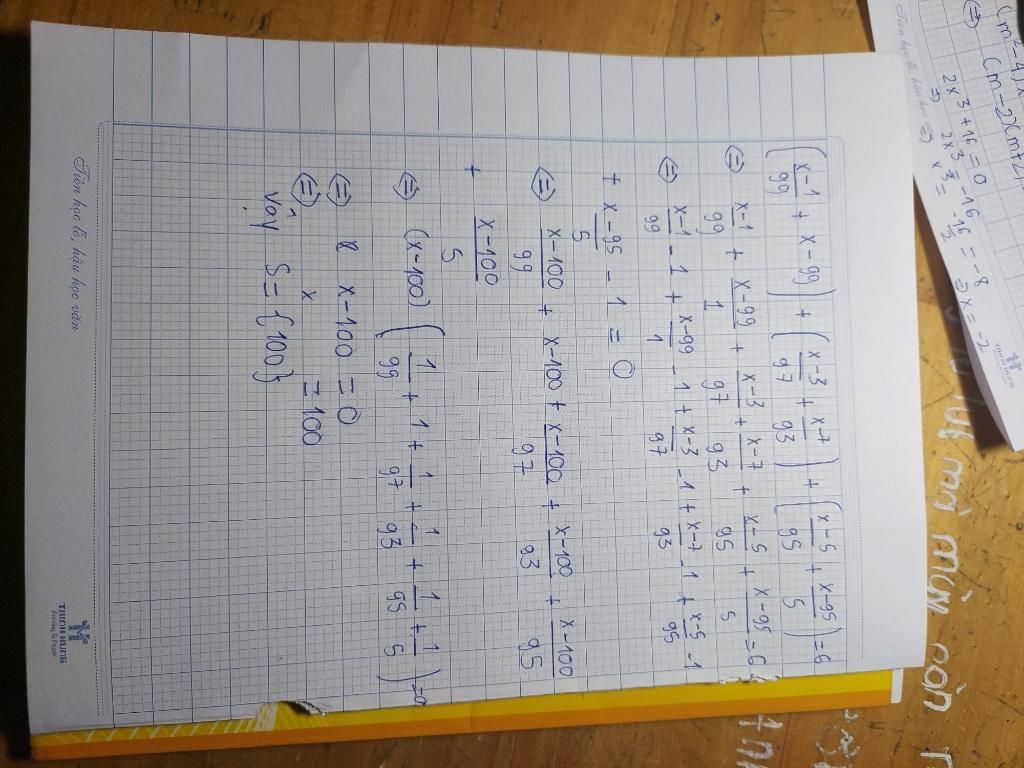 (x-1/99 + x-99) + (x-3/97 + x-7/93) + (x-5/95 + x-95/5) = 6
⇔ x-1/99 + x-99/1 + x-3/97 + x-7/93 + x-5/95 + x-95/5 = 6
⇔ x-1/99 - 1 + x-99/1 - 1 + x-3/97 - 1 + x-7/93 - 1 + x-5/95 - 1
+ x-95/5 - 1 = 0
⇔ x-100/99 + x-100 + x-100/97 + x-100/93 + x-100/95
+ x-100/5
⇔ (x-100) (1/99 + 1 + 1/97 + 1/93 + 1/95 + 1/5) = 0
⇔ x-100 = 0
⇔ x = 100
Vậy S = {100}
Tiên học lễ, hậu học văn
TRINH HUNG
Printing & Paper
(m²-4)x
⇔ (m-2)(m+2)
2x³ + 16 = 0
⇒ 2x³ = -16
⇒ x³ = -16/2 = -8 ⇒ x = -2